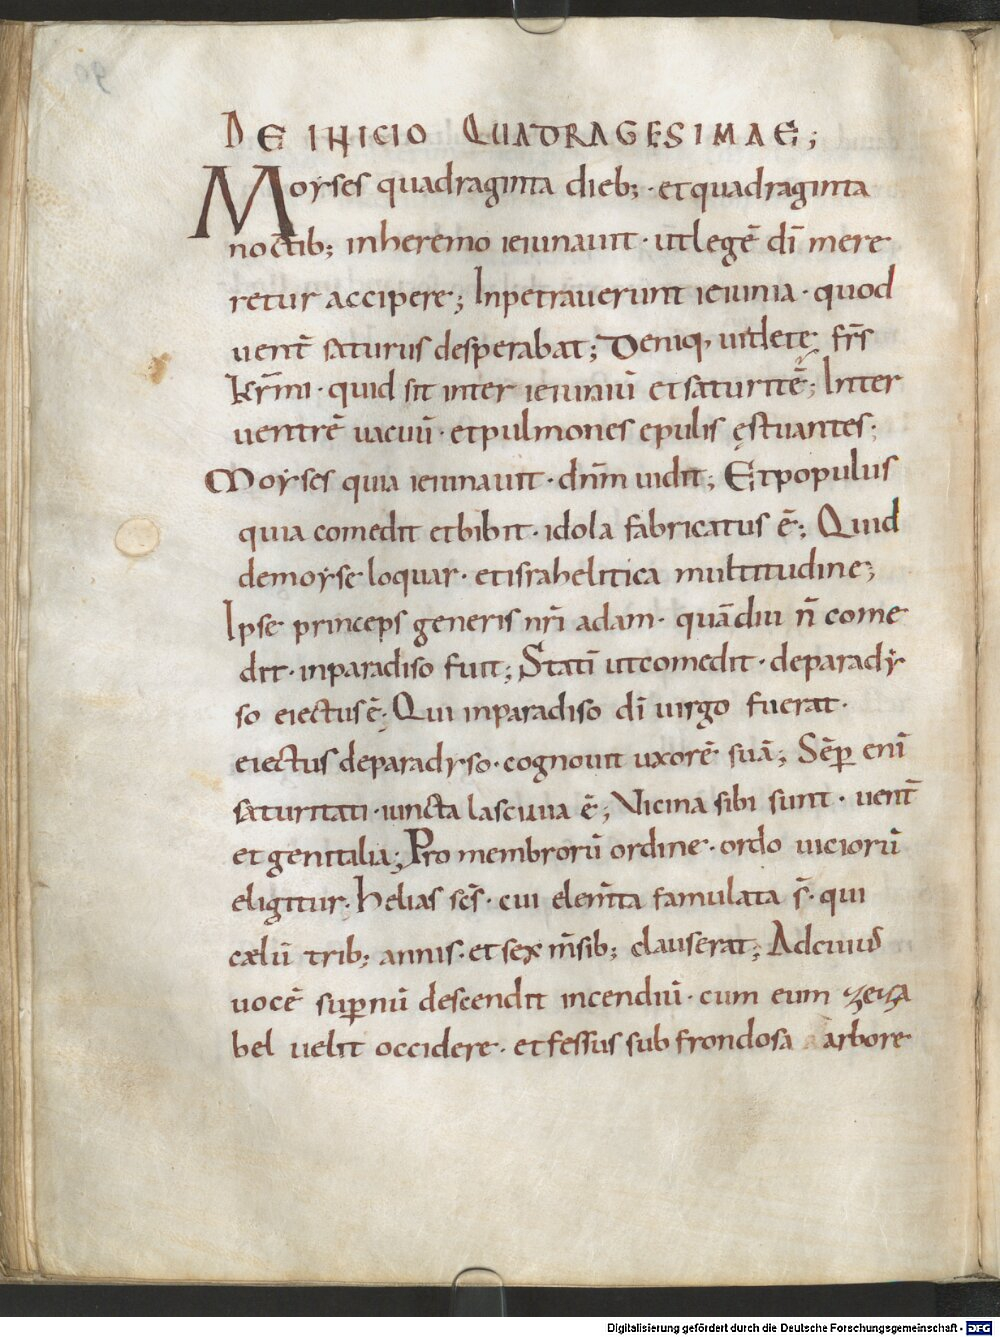 DE INICIO QUADRAGESIMAE;
Moyses quadraginta dieb; · et quadraginta
noctib; in heremo ieiunauit · ut legē dī mere
retur accipere; Inpetrauerunt ieiunia · quod
uent̄ saturus desperabat; Deniq, uidete fr̄s
kr̄mi · quid sit inter ieiuniū et saturitē; Inter
uentrē uacuū · et pulmones epulis ęstuantes;
Moyses quia ieiunauit · dn̄m uidit; Et populus
quia comedit et bibit · idola fabricatus ē; Quid
de moyse loquar · et israhelitica multitudine;
Ipse princeps generis nr̄i adam · quādiu n̄ come
dit · in paradiso fuit; Statī ut comedit · de parady
so eiectus ē · Qui in paradiso dī uirgo fuerat ·
eiectus de paradyso · cognouit uxorē suā; Sēp enī
saturitati · iuncta lasciuia ē; Vicina sibi sunt · uent̄
et genitalia; Pro membrorū ordine · ordo uiciorū
eligitur · helias sc̄s · cui elem̄ta famulata s̄ · qui
cælū trib; annis · et sex m̄sib; clauserat; Ad cuius
uocē sup̄nū descendit incendiū · cum eum zeza
bel uelit occidere · et fessus sub frondosa arbore
90
Digitalisierung gefördert durch die Deutsche Forschungsgemeinschaft - DFG